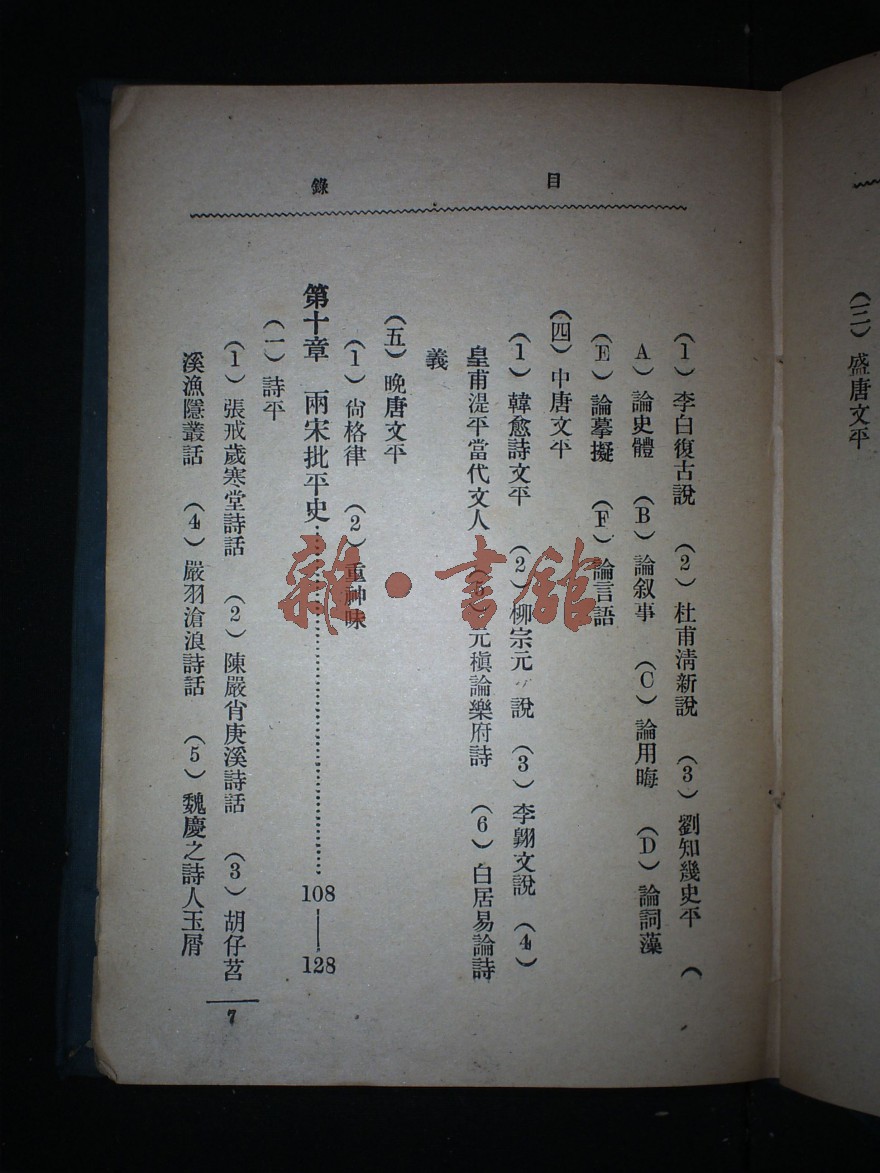 (三) 盛唐文平
目錄
(1) 李白復古說 (2) 杜甫淸新說 (3) 劉知幾史平 (
A) 論史體 (B) 論叙事 (C) 論用晦 (D) 論詞藻
(E) 論摹擬 (F) 論言語
(四) 中唐文平
(1) 韓愈詩文平 (2) 柳宗元 說 (3) 李翺文說 (4)
皇甫湜平當代文人 (5) 元稹論樂府詩 (6) 白居易論詩
義
(五) 晚唐文平
(1) 尙格律 (2) 重神味
第十章 兩宋批平史 108—128
(一) 詩平
(1) 張戒歲寒堂詩話 (2) 陳嚴肖庚溪詩話 (3) 胡仔苕
溪漁隱叢話 (4) 嚴羽滄浪詩話 (5) 魏慶之詩人玉屑
7
雜·書館